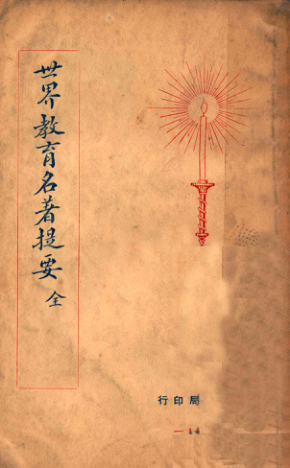 世界教育名著提要 全
局印行